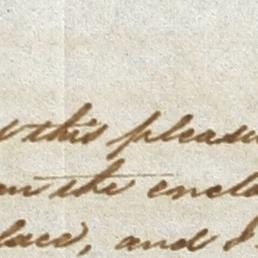 this pleasu
the encl
lace, and I